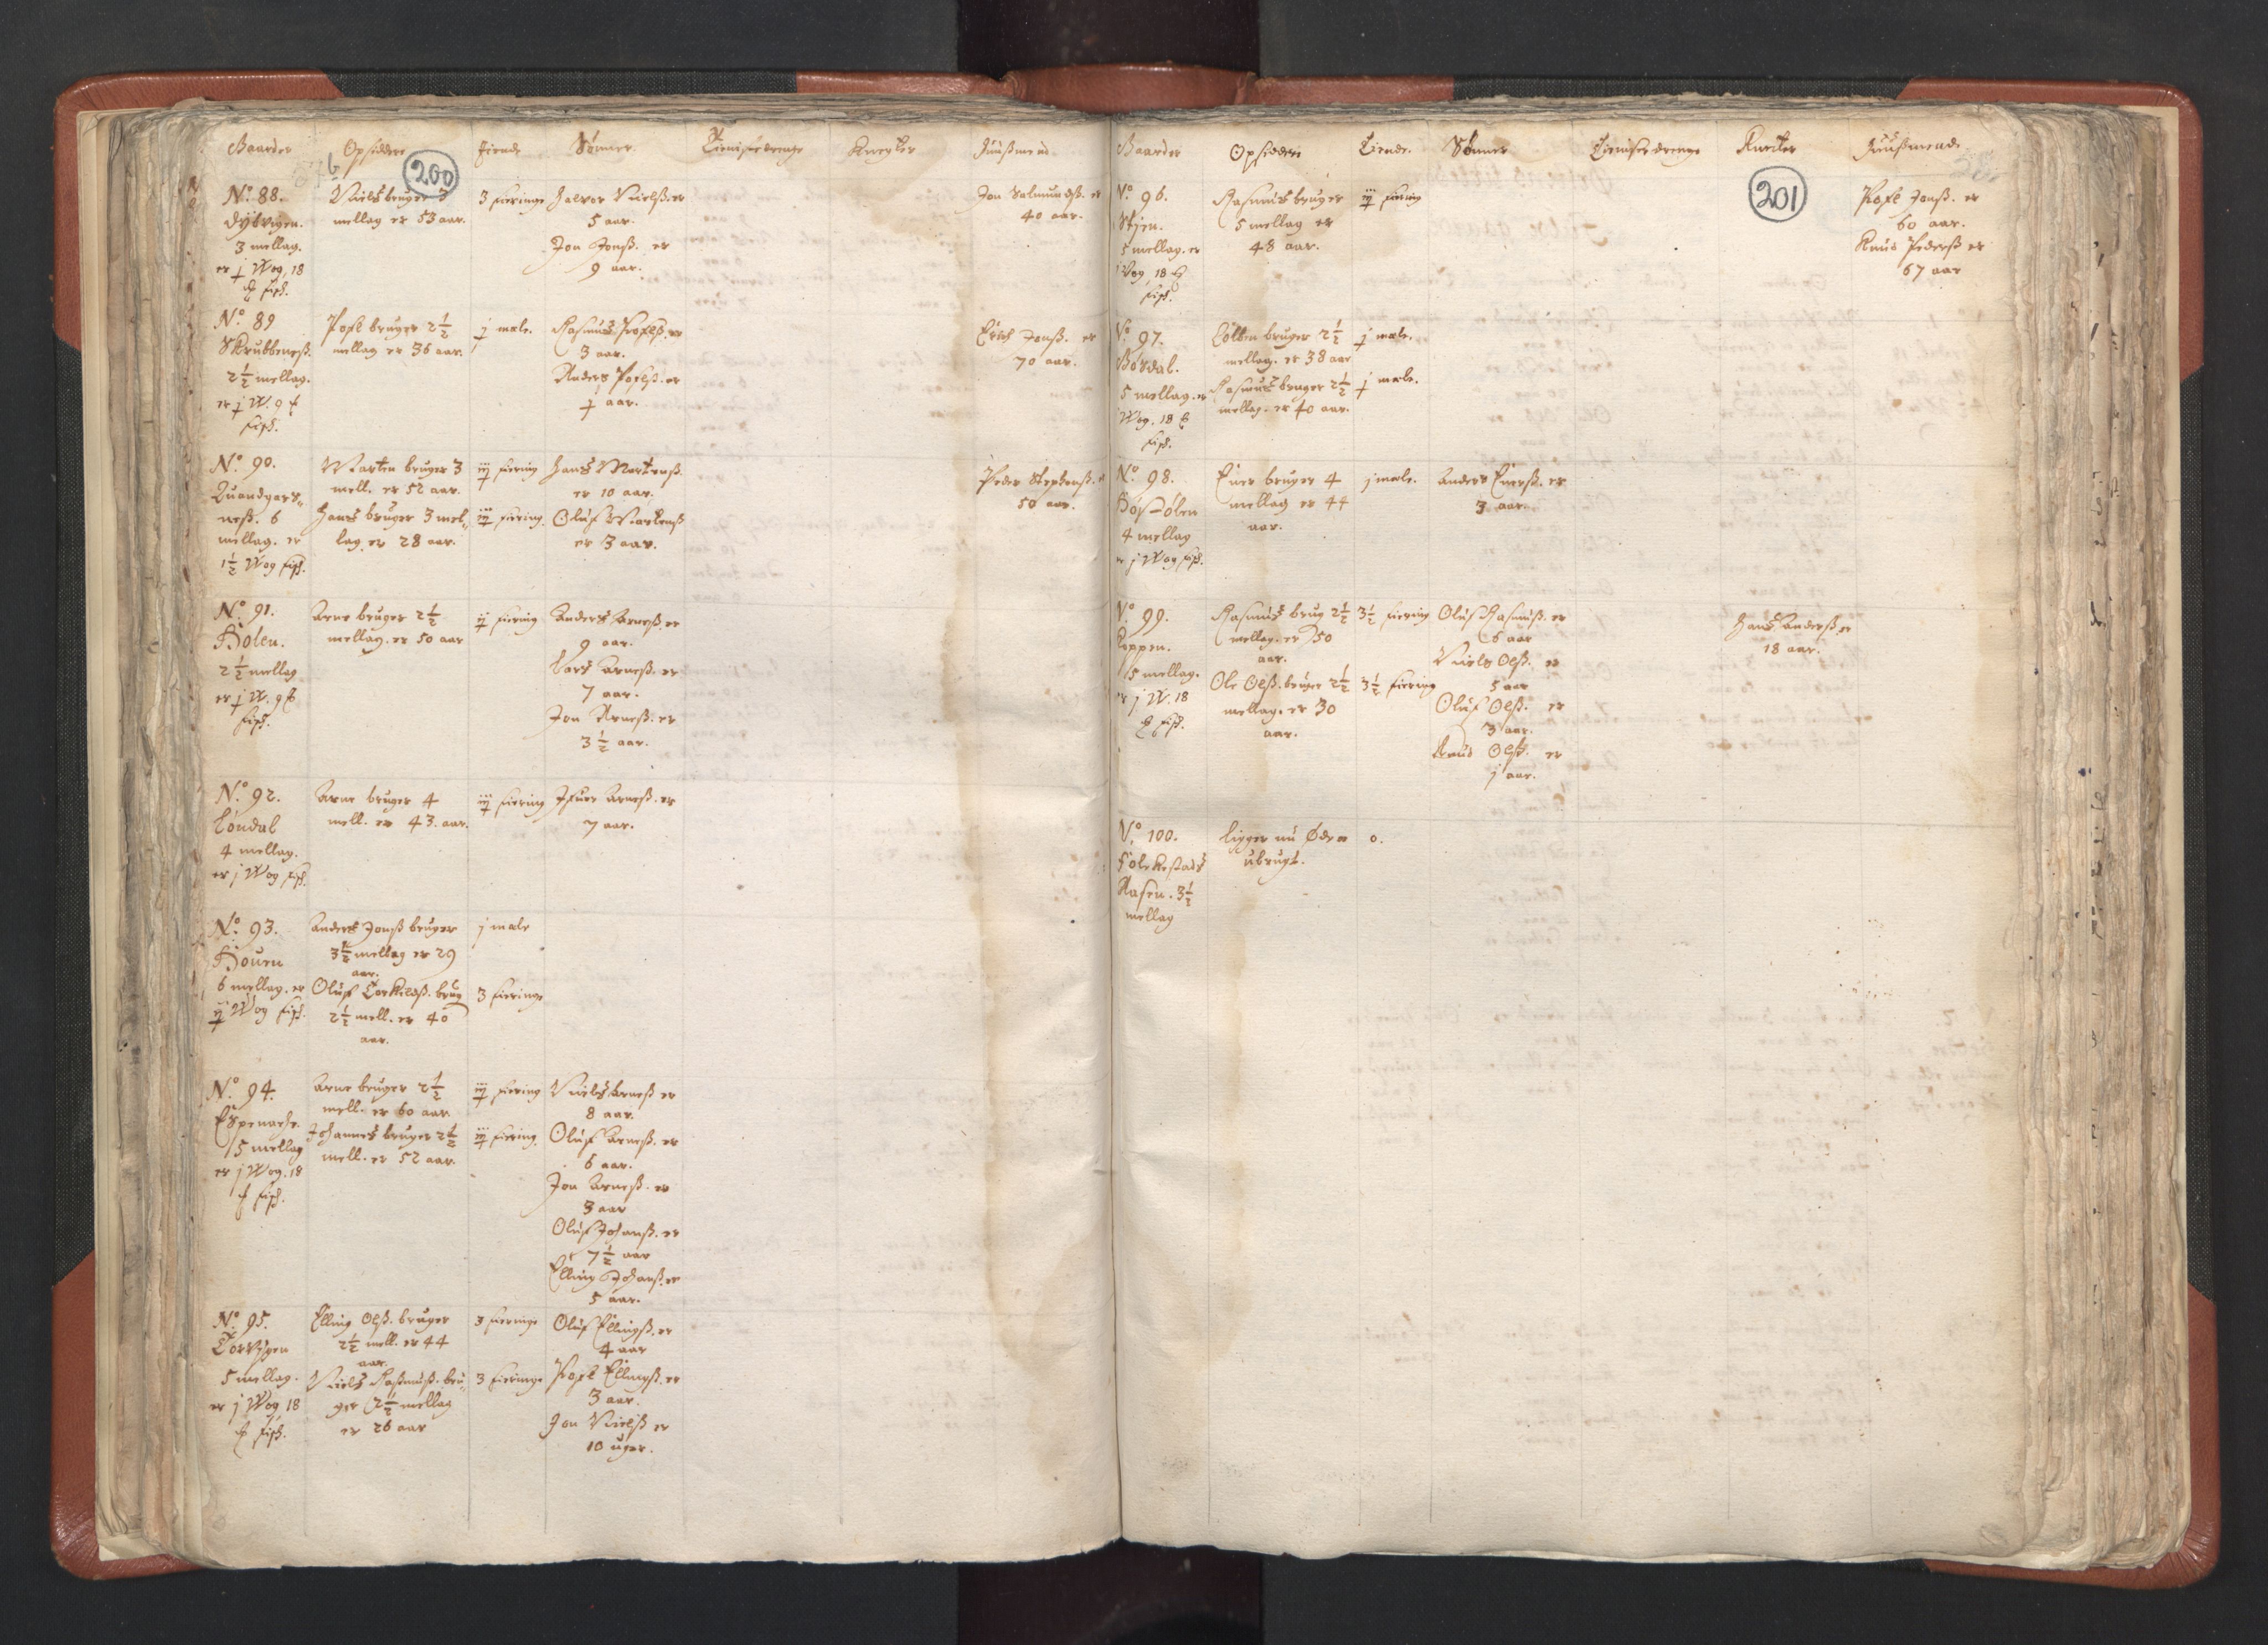 Gaarder Opsiddere Tiende Sønner Tienistedrenge Knegter Huusmend
200
No. 88.
Dybvigen.
3 mellag.
er j Wog, 18
fisk.
Niels bruger 3
mellag er 53 aar.
3 fieringe
Halvor Nielss. er
5 aar.
Jon Jonss. er
9 aar.
Jon Salmundss. er
40 aar.
No. 89
Skrubbeness.
2 1/2 mellag.
er j W. 9
fisk.
Pofl bruger 2 1/2
mellag er 36 aar.
j mæle.
Rasmus Poflss. er
3 aar.
Anders Poflss. er
j aar.
Erich Jonss. er
70 aar.
No. 90.
Quandgars-
ness. 6
mellag. er
1 1/2 Wog fisk.
Marten bruger 3
mell. er 52 aar.
Hans bruger 3 mel-
lag er 28 aar.
iij fiering
iij fiering.
Hans Mortenss.
er 10 aar.
Oluf Martenss
er 3 aar.
Peder Steffenss. er
50 aar.
No. 91.
Holen.
2 1/2 mellag
er j W. 9
fisk.
Arne bruger 2 1/2
mellag. er 50 aar
ij fiering
Anders Arness. er
9 aar.
Lars Arness. er
7 aar.
Jon Arness. er
3 1/2 aar.
No. 92.
Løndal
4 mellag.
er j Wog fisk.
Arne bruger 4
mell. er 43. aar.
iij fiering
Ifuer Arness. er
7 aar.
No. 93.
Houen
6 mellag. er
ij Wog fisk.
Anders Jonss bruger
3 1/2 mellag er 29
aar.
Oluf Torkildss. brug
2 1/2 mell. er 40
aar.
j mæle
3 fieringe
No. 94.
Espenache.
5 mellag
er j Wog. 18
fisk.
Arne bruger 2 1/2
mell. er 60 aar
Johannes bruger 2 1/2
mell. er 52 aar.
iij fiering
iij fiering.
Niels Arness er
8 aar.
Oluf Arness. er
6 aar.
Jon Arness. er
3 aar
Oluf Johanss. er
7 1/2 aar
Elling Johanss. er
5 aar.
No. 95.
Torvigen
5 mellag.
er j Wog 18
fisk.
Elling Olss. bruger
2 1/2 mell. er 44
aar.
Niels Rasmuss. bru-
ger 2 1/2 mellag
er 26 aar
3 fieringe
3 fieringe
Oluf Ellingss. er
4 aar
Pofl Ellingss. er
3 aar.
Jon Nielss er
10 uger.
Gaarder Opsiddere Tiende. Sønner Tienistedrenge Knecter Huusmende
201
No. 96.
Stjen.
5 mellag. er
j Wog, 18
fisk.
Rasmus bruger
5 mellag er
48 aar.
iij fiering
Pofl Jonss. er
60 aar.
Knud Pederss er
67 aar
No. 97.
Børdal.
5 mellag. er
j Wog. 18
fisk.
Colben bruger 2 1/2
mellag. er 38 aar
Rasmus bruger 2 1/2
mellag. er 40 aar.
j mæle.
j mæle.
No. 98.
4 mellag
er j Wog fisk.
Einer bruger 4
mellag er 44
aar.
j mæle.
Anders Einerss. er
3 aar.
No. 99.
Koppen.
5 mellag.
er j W. 18
fisk.
Rasmus brug 2 1/2
mellag. er 50
aar.
Ole Olss. bruger 2 1/2
mellag. er 30
aar.
3 1/2 fiering
3 1/2 fiering
Oluf Rasmuss. er
6 aar
Niels Olss. er
5 aar
Oluf Olss. er
3 aar.
Knud Olss. er
j aar.
Hans Anderss. er
18 aar.
No. 100.
Folkestads
Aasen. 3 1/2
mellag
ligger nu Øde
ubrugt.
0.